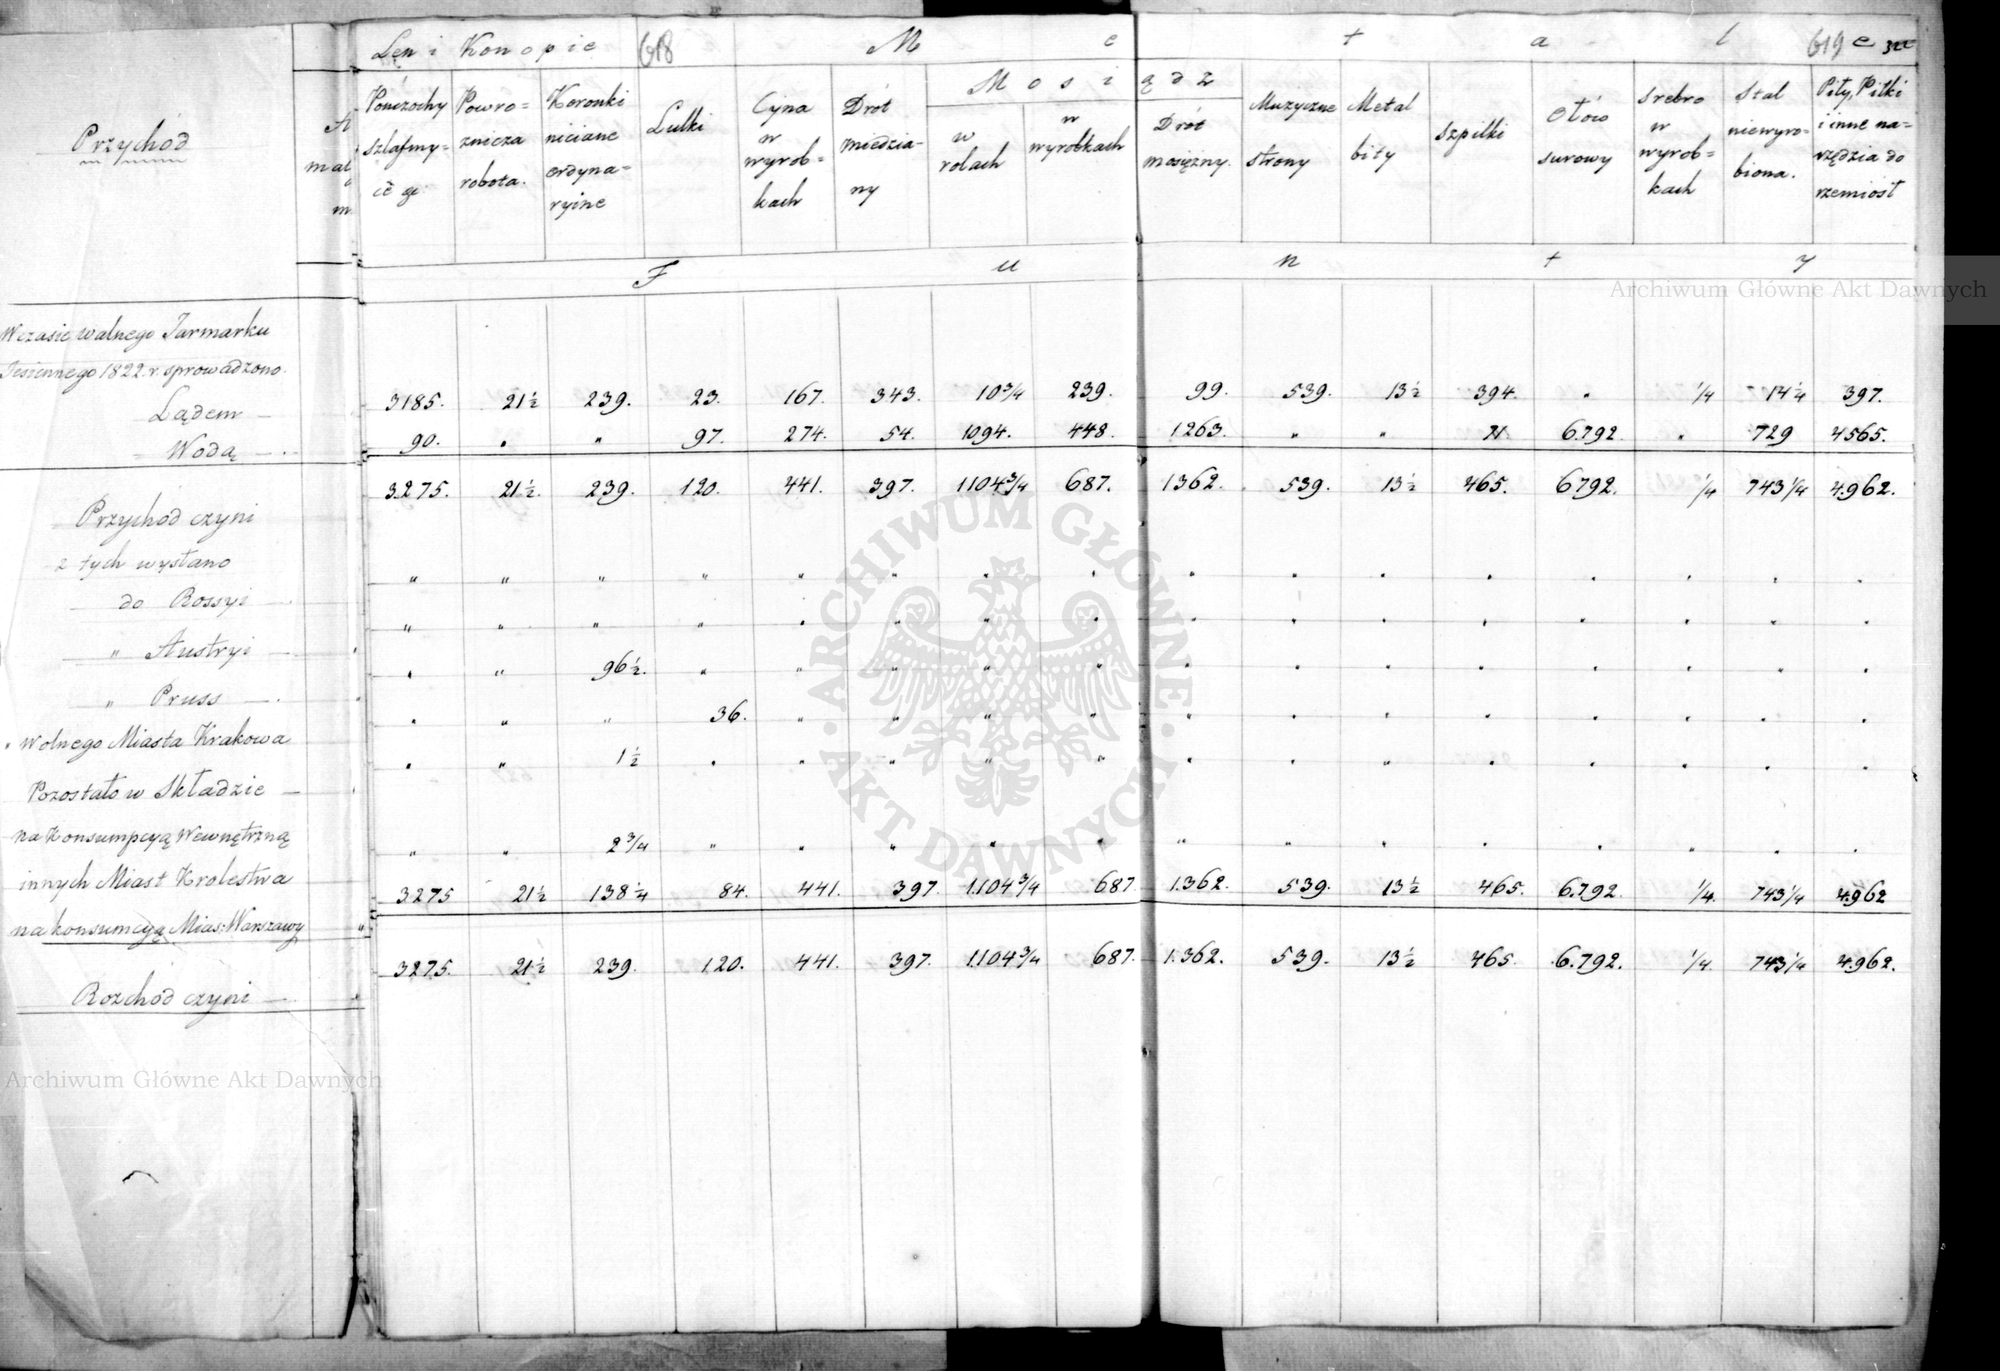 Len i Konopie 618 M e t a l e 619 322
Przychód
Pończochy szlafmy=
Powro= znicza robota.
Koronki niciane ordyna= ryine
Lulki
Cyna w wyrob= kach
Drót miedzia= ny
Mosiądz
w rolach
w wyrobkach
Drót mosiężny.
Muzyczne strony
Metal bity
Szpilki
Ołów surowy
Srebro w wyrob= kach
Stal niewyro= biona.
Piły, Pilki i inne na= rzędzia do rzemiosł
F u n t y
W czasie walnego Jarmarku
Jesiennego 1822 r. sprowadzono.
Lądem — 3185. 21 1/2 239. 23. 167. 343. 10 3/4 239. 99. 539. 13 1/2 394. " 1/4 14 1/4 397.
Wodą — 90. " " 97. 274. 54. 1094. 448. 1263. " " 71. 6.792. " 729 4565.
Przychód czyni 3275. 21 1/2. 239. 120. 441. 397. 1104 3/4 687. 1362. 539. 13 1/2 465. 6792. 1/4 743 1/4 4.962.
z tych wysłano
do Rossyi — " " " " " " " " " " " " " " " "
" Austryi — " " " " " " " " " " " " " " " "
" Pruss — " " 96 1/2. " " " " " " " " " " " " "
" Wolnego Miasta Krakowa " " " 36. " " " " " " " " " " " "
Pozostało w Składzie — " " 1 1/2 " " " " " " " " " " " " "
na Konsumpcyą Wewnętrzną
innych Miast Krolestwa " " 2 3/4 " " " " " " " " " " " " "
na konsumcyą Mias: Warszawy 3275 21 1/2 138 1/4 84. 441. 397. 1.104 3/4 687 1.362. 539. 13 1/2 465. 6.792. 1/4. 743 1/4 4.962
Rozchód czyni — 3275. 21 1/2 239. 120. 441. 397. 1.104 3/4 687. 1.362. 539. 13 1/2 465. 6.792. 1/4. 743 1/4 4.962.
Archiwum Główne Akt Dawnych
ARCHIWUM GŁÓWNE · AKT DAWNYCH ·
Archiwum Główne Akt Dawnych